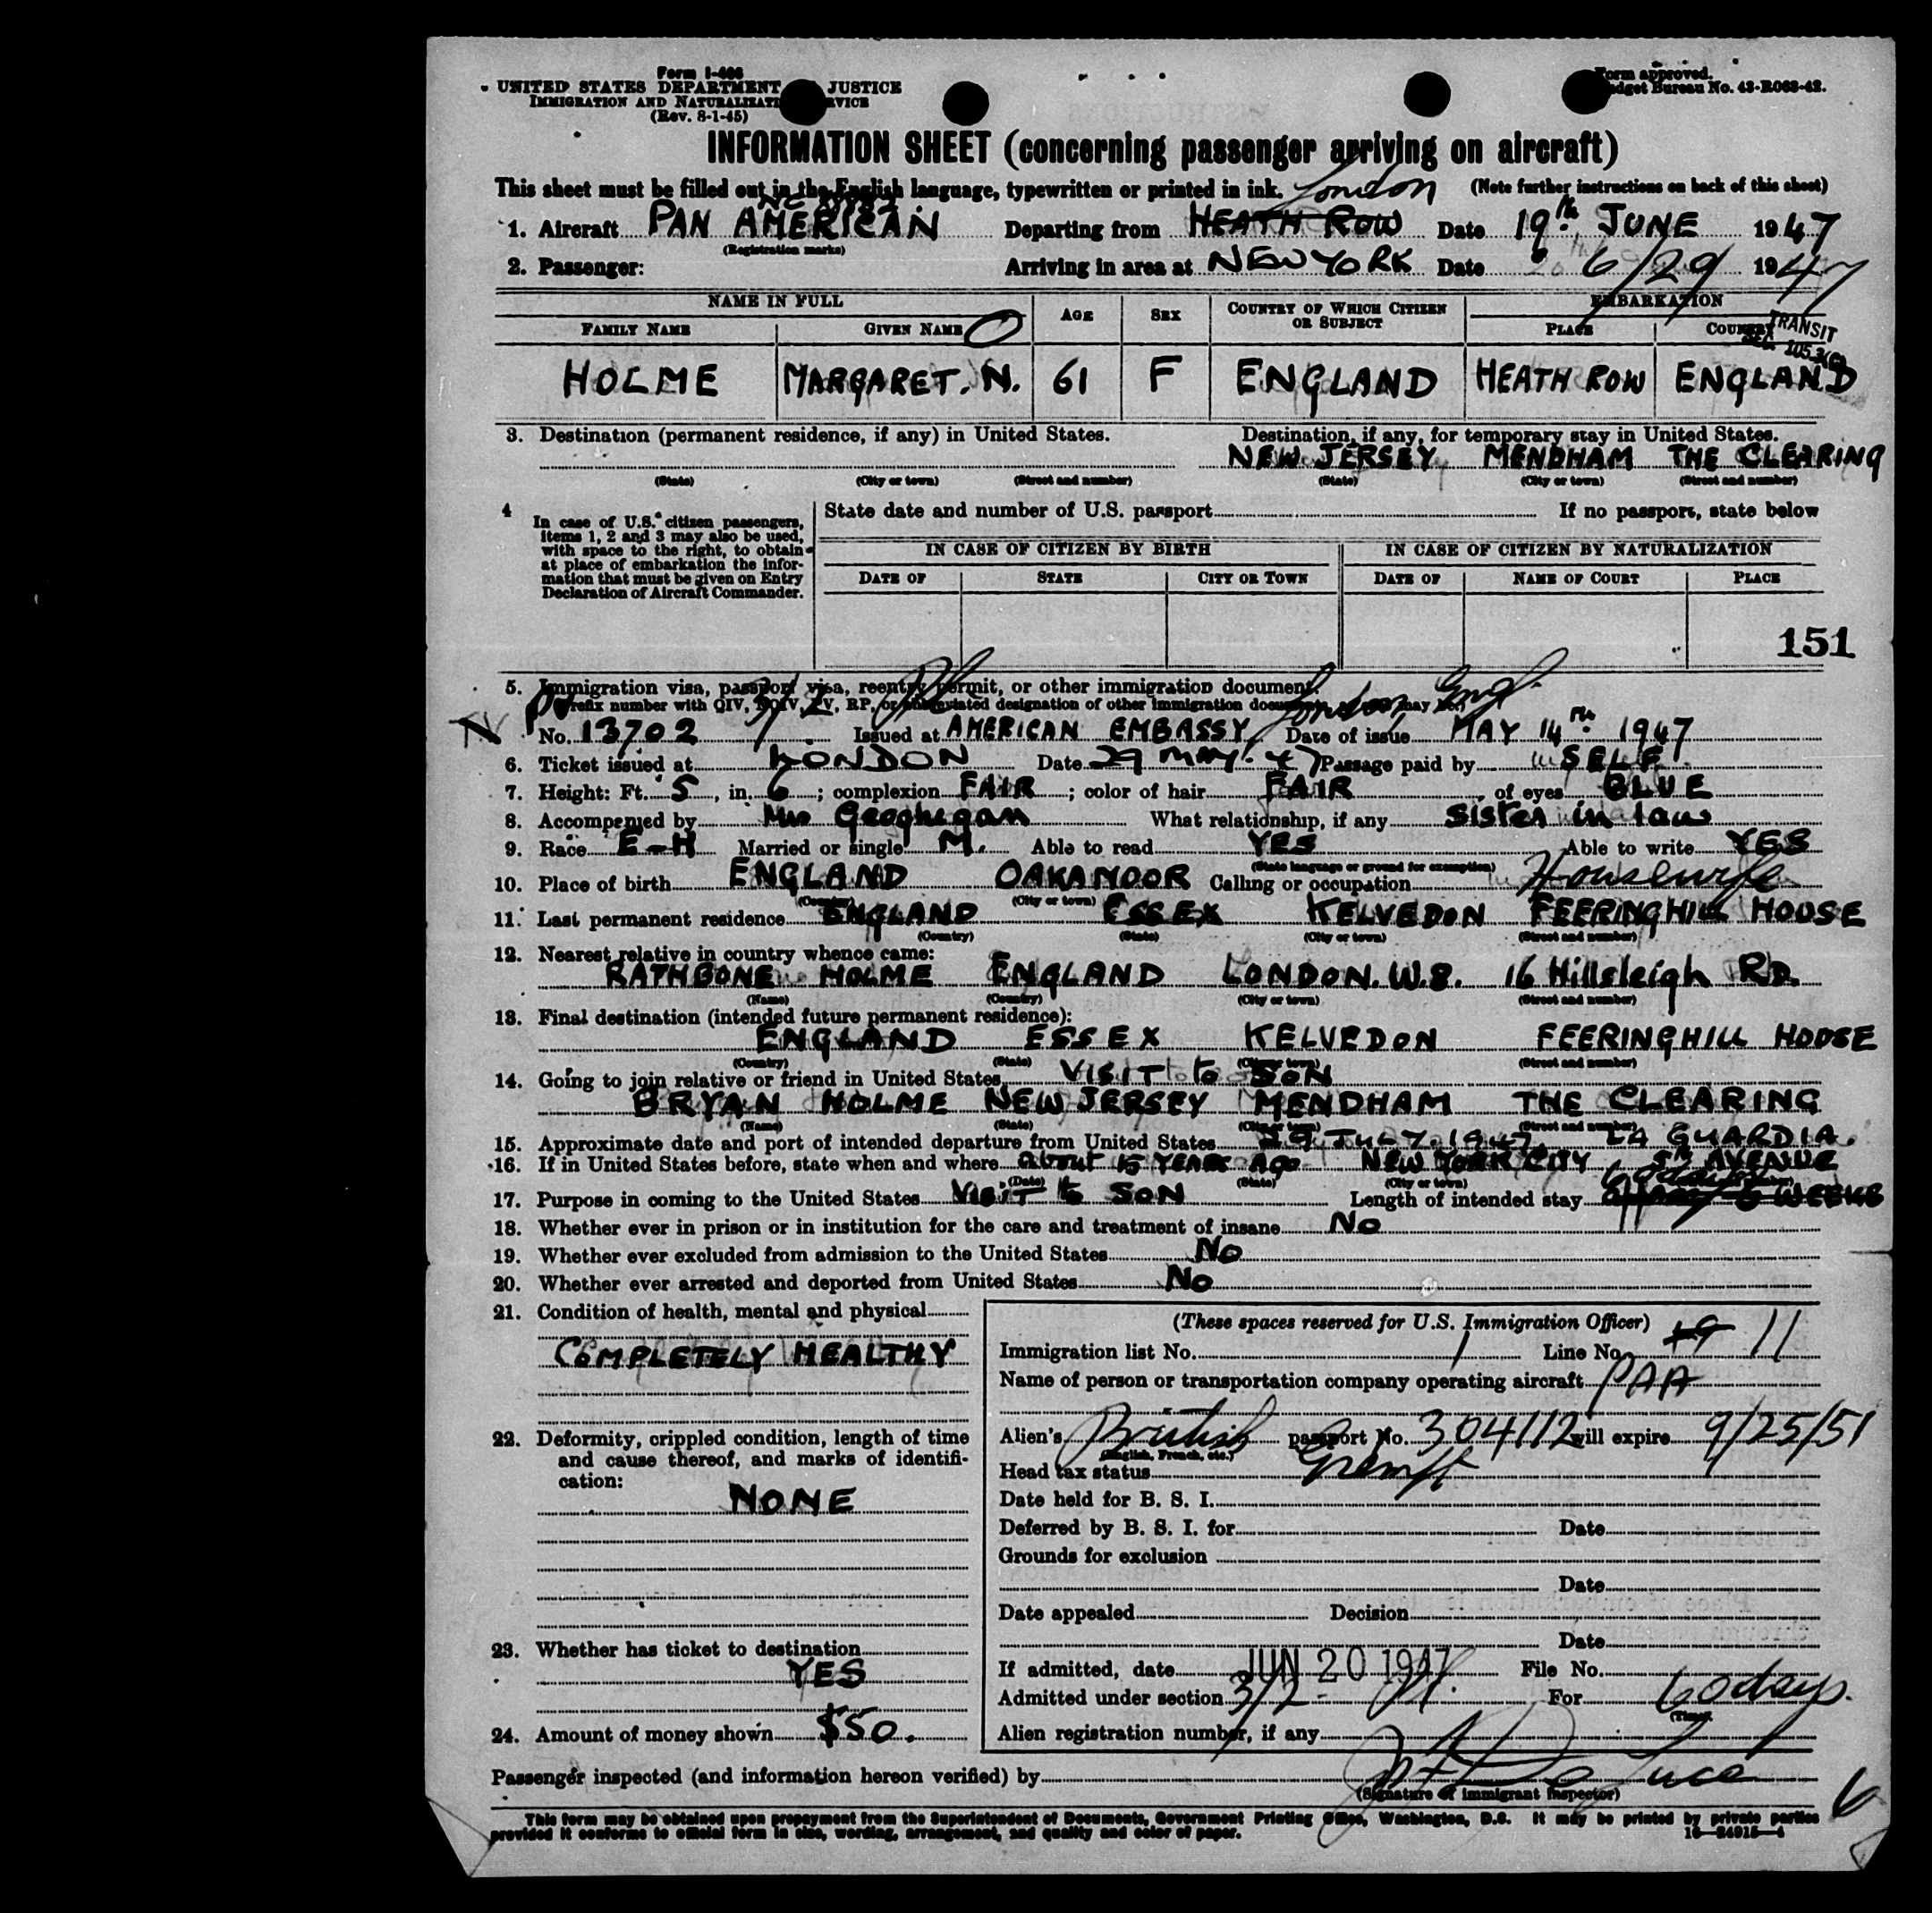 Form I-466
UNITED STATES DEPARTMENT JUSTICE
IMMIGRATION AND NATURALIZATI RVICE
(Rev. 8-1-45)
Form approved.
dget Bureau No. 43-R063-42.
INFORMATION SHEET (concerning passenger arriving on aircraft)
This sheet must be filled out in the English language, typewritten or printed in ink. London (Note further instructions on back of this sheet)
1. Aircraft PAN AMERICAN Departing from HEATH ROW Date 19th JUNE 1947
(Registration marks)
2. Passenger: Arriving in area at NEW YORK Date 6/29/ 1947
NAME IN FULL AGE SEX COUNTRY OF WHICH CITIZEN OR SUBJECT EMBARKATION
FAMILY NAME GIVEN NAME PLACE COUNTRY
TRANSIT
HOLME MARGARET. N. 61 F ENGLAND HEATH ROW ENGLAND
3. Destination (permanent residence, if any) in United States. Destination, if any, for temporary stay in United States.
NEW JERSEY MENDHAM THE CLEARING
(State) (City or town) (Street and number) (State) (City or town) (Street and number)
4 In case of U.S. citizen passengers, items 1, 2 and 3 may also be used, with space to the right, to obtain at place of embarkation the information that must be given on Entry Declaration of Aircraft Commander.
State date and number of U.S. passport If no passport, state below
IN CASE OF CITIZEN BY BIRTH IN CASE OF CITIZEN BY NATURALIZATION
DATE OF STATE CITY OR TOWN DATE OF NAME OF COURT PLACE
151
5. Immigration visa, passport visa, reentry permit, or other immigration document.
Prefix number with QIV, NQIV, PV, RP, or abbreviated designation of other immigration document
London, Engl.
No. 13702 Issued at AMERICAN EMBASSY Date of issue MAY 14th 1947
6. Ticket issued at LONDON Date 29 May. 47 Passage paid by SELF
7. Height: Ft. 5, in. 6; complexion FAIR; color of hair FAIR, of eyes BLUE
8. Accompanied by Mrs Geoghegan What relationship, if any Sister in law
9. Race E-H Married or single M. Able to read YES Able to write YES
(State language or ground for exemption)
10. Place of birth ENGLAND OAKAMOOR Calling or occupation Housewife
(Country) (City or town)
11. Last permanent residence ENGLAND ESSEX KELVEDON FEERINGHILL HOUSE
(Country) (State) (City or town) (Street and number)
12. Nearest relative in country whence came:
RATHBONE HOLME ENGLAND LONDON. W.8. 16 Hillsleigh RD.
(Name) (Country) (City or town) (Street and number)
13. Final destination (intended future permanent residence):
ENGLAND ESSEX KELVEDON FEERINGHILL HOUSE
(Country) (State) (City or town) (Street and number)
14. Going to join relative or friend in United States VISIT to SON
BRYAN HOLME NEW JERSEY MENDHAM THE CLEARING
(Name) (State) (City or town) (Street and number)
15. Approximate date and port of intended departure from United States 29 JULY. 1947 LA GUARDIA.
16. If in United States before, state when and where about 15 YEARS AGO NEW YORK CITY 5th AVENUE
(Date) (State) (City or town)
17. Purpose in coming to the United States VISIT to SON Length of intended stay 60 days WEEKS
18. Whether ever in prison or in institution for the care and treatment of insane No
19. Whether ever excluded from admission to the United States No
20. Whether ever arrested and deported from United States No
21. Condition of health, mental and physical
COMPLETELY HEALTHY
22. Deformity, crippled condition, length of time and cause thereof, and marks of identification:
NONE
23. Whether has ticket to destination
YES
24. Amount of money shown $50.
(These spaces reserved for U.S. Immigration Officer)
Immigration list No. 1 Line No. 19 11
Name of person or transportation company operating aircraft PAA
Alien's British passport No. 304112 will expire 9/25/51
(English, French, etc.)
Head tax status Exempt
Date held for B. S. I.
Deferred by B. S. I. for Date
Grounds for exclusion
Date
Date appealed Decision
Date
If admitted, date JUN 20 1947 File No.
Admitted under section 3/2 For 60 days.
(Time)
Alien registration number, if any
Passenger inspected (and information hereon verified) by
(Signature of immigrant inspector)
6
This form may be obtained upon prepayment from the Superintendent of Documents, Government Printing Office, Washington, D.C. It may be printed by private parties
provided it conforms to official form in size, wording, arrangement, and quality and color of paper. 16—24915—4